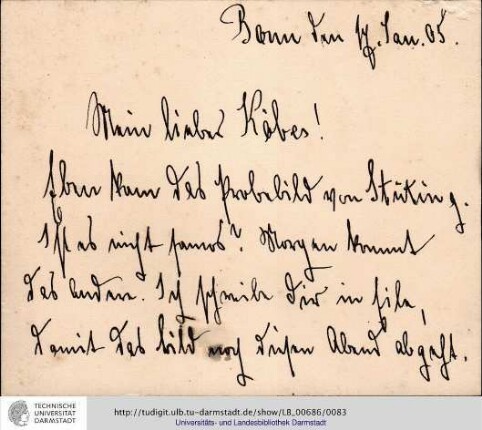 Bonn den 17. Jan. 05.
Mein lieber Köbes!
Eben kam das Probebild von Stüking.
Ist es nicht famos? Morgen kommt
das andere. Ich schreibe dir in Eile,
damit das Bild noch diesen Abend abgeht.
TECHNISCHE
UNIVERSITÄT
DARMSTADT
http://tudigit.ulb.tu-darmstadt.de/show/LB_00686/0083
Universitäts- und Landesbibliothek Darmstadt